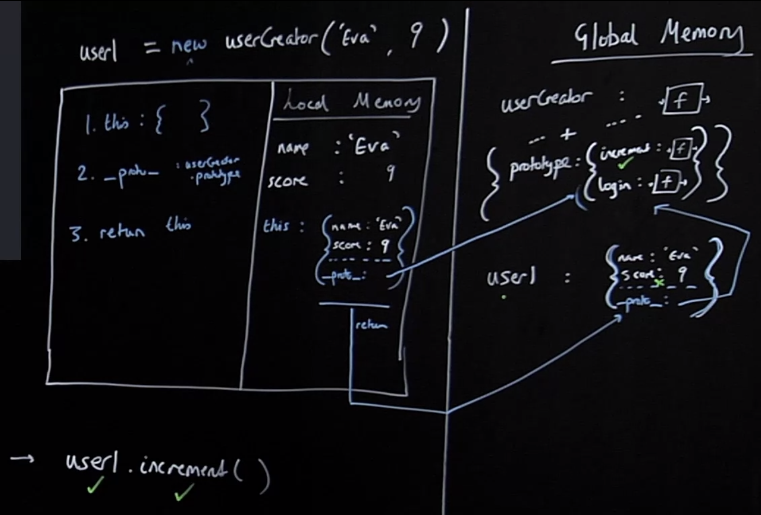 user1 = new userCreator('Eva', 9)
1. this : { }
2. __proto__ : userCreator
.prototype
3. return this
Local Memory
name : 'Eva'
score : 9
this : { name : 'Eva'
score : 9
__proto__ : }
return
→ user1.increment( )
Global Memory
userCreator : f
--- + ----
{ prototype : { increment : f
login : f } }
user1 : { name : 'Eva'
score : 9
__proto__ : }